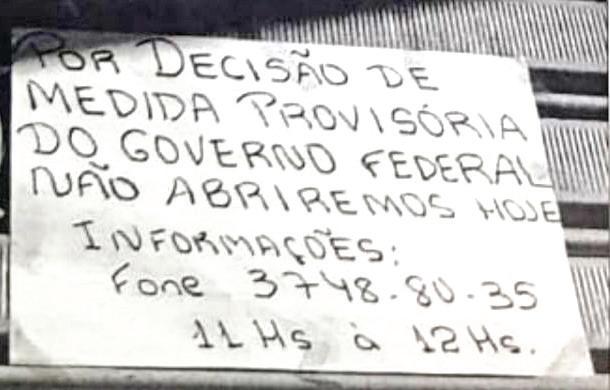 POR DECISÃO DE
MEDIDA PROVISÓRIA
DO GOVERNO FEDERAL
NÃO ABRIREMOS HOJE
INFORMAÇÕES:
Fone 3748.80.35
11Hs à 12Hs.